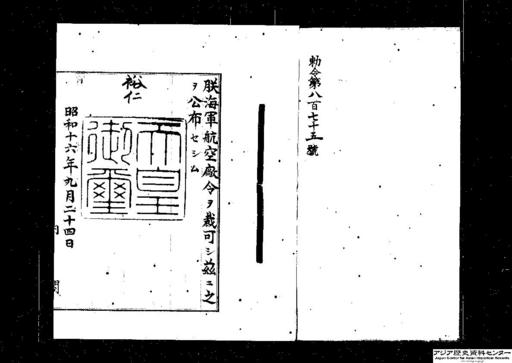 勅令第八百七十五號
朕海軍航空廠令ヲ裁可シ茲ニ之
ヲ公布セシム
裕仁
天皇
御璽
昭和十六年九月二十四日
内閣
アジア歴史資料センター
Japan Center for Asian Historical Records